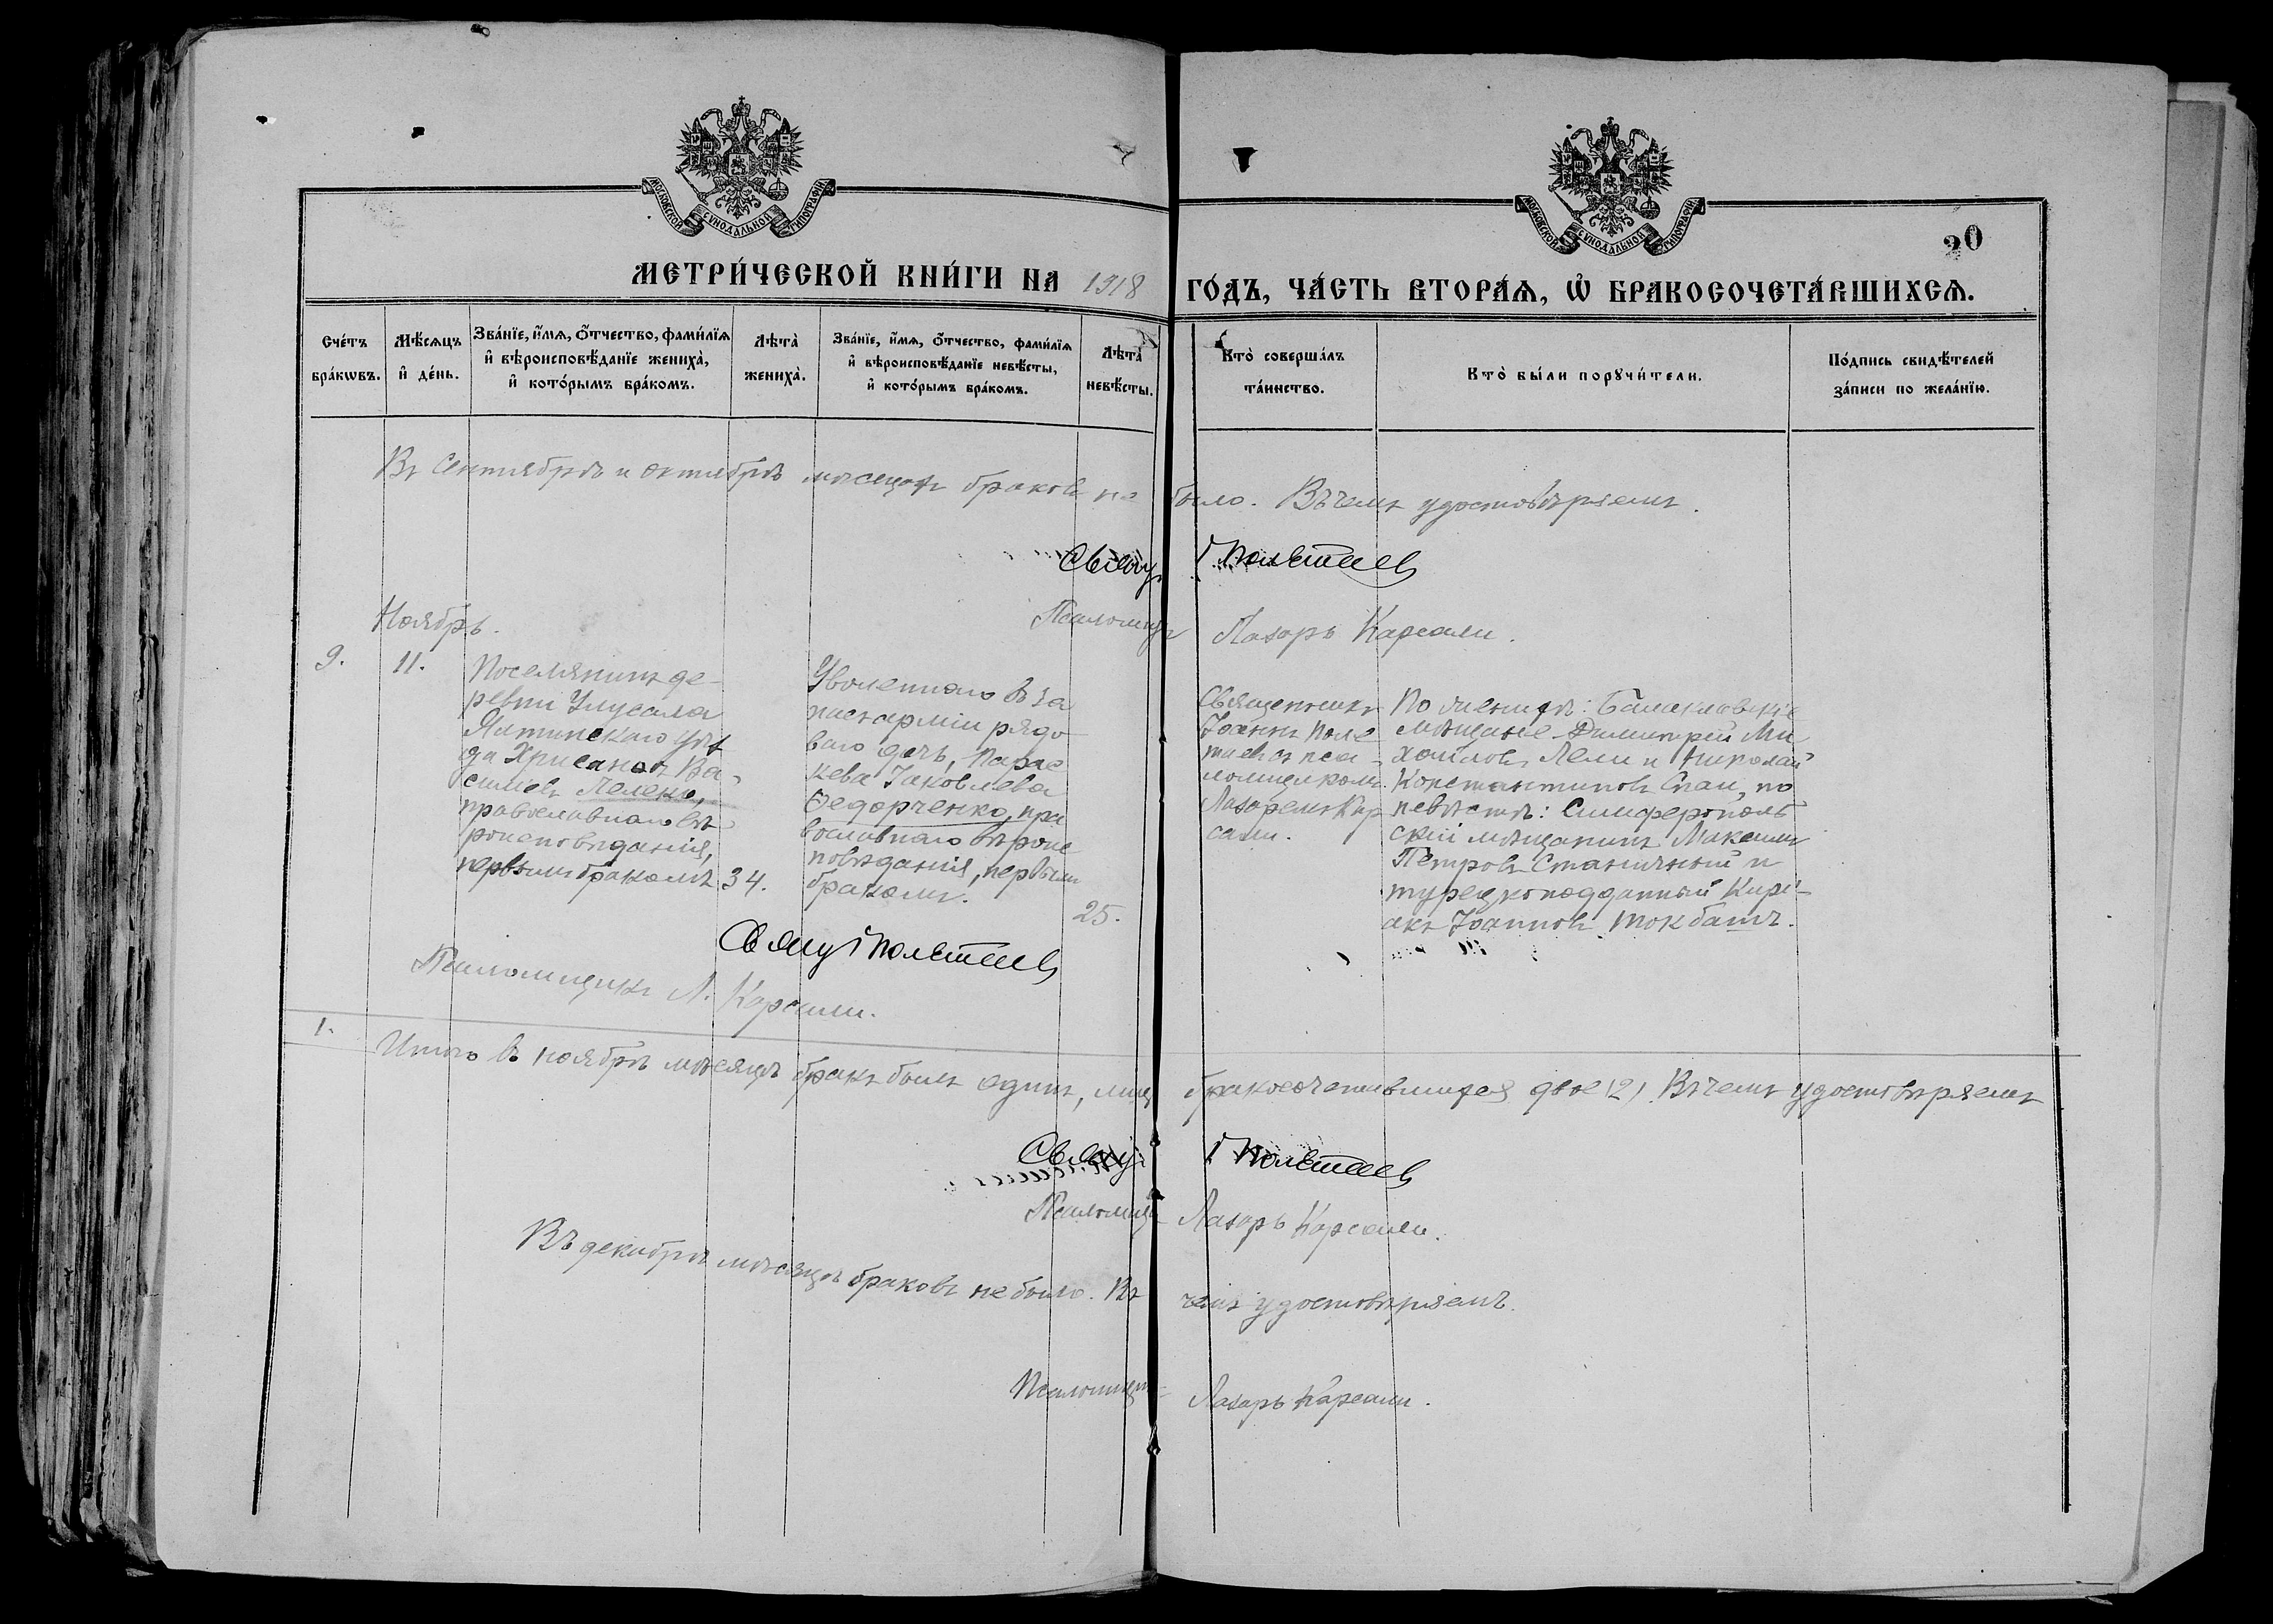 МОСКОВСКОЙ СУНОДАЛЬНОЙ ТИПОГРАФІИ
МОСКОВСКОЙ СУНОДАЛЬНОЙ ТИПОГРАФІИ
20
МЕТРИ́ЧЕСКОЙ КНИ́ГИ НА 1918 ГО́ДЪ, ЧА́СТЬ ВТОРА́Ѧ, Ѽ БРАКОСОЧЕТА́ВШИХСѦ.
Сче́тъ
бра́кѡвъ.
Мѣ́сѧцъ
и҆ де́нь.
Зва́нїе, и҆́мѧ, ѻ҆́тчество, фами́лїѧ
и҆ вѣроисповѣ́данїе жениха̀,
и҆ кото́рымъ бра́комъ.
Лѣта̀
жениха̀.
Зва́нїе, и҆́мѧ, ѻ҆́тчество, фами́лїѧ
и҆ вѣроисповѣ́данїе невѣ́сты,
и҆ кото́рымъ бра́комъ.
Лѣта̀
невѣ́сты.
Кто̀ соверша́лъ
та́инство.
Кто̀ бы́ли порꙋчи́тели.
По́дпись свидѣ́телей
за́писи по жела́нїю.
Въ Сентябрѣ и октябрѣ мѣсяцахъ браковъ не было. Въ чемъ удостовѣряемъ.
Свящ. І Полетаевъ
Псаломщикъ Лазарь Карсали.
Ноябрь.
9.
11.
Поселянинъ де-
ревни Улусала
Ялтинскаго уѣз
да Хрисанѳъ Ва-
сильевъ Пелехо,
православнаго вѣ-
роисповѣданія,
первымъ бракомъ
34.
Уволеннаго въ за
пасъ арміи рядо
ваго дочь, Парас
кева Іаковлева
Федорченко, пра
вославнаго вѣроис
повѣданія, первымъ
бракомъ.
25.
Священникъ
Іоаннъ Поле
таевъ съ пса-
ломщикомъ
Лазаремъ Кар
сали.
По женихѣ: Балаклавскіе
мѣщане Димитрій Ми
хайловъ Лели и Николай
Константиновъ Спаи, по
невѣстѣ: Симферополь
скій мѣщанинъ Максимъ
Петровъ Станичный и
турецкоподданный Кирі-
акъ Іоанновъ Токбашъ.
Свящ І Полетаевъ
Псаломщикъ Л. Карсали.
1.
Итого въ ноябрѣ мѣсяцѣ бракъ былъ одинъ, лицъ бракосочетавшихся двое (2) Въ чемъ удостовѣряемъ
Свящ. І Полетаевъ
Псаломщикъ Лазарь Карсали.
Въ декабрѣ мѣсяцѣ браковъ не было. Въ чемъ удостовѣряемъ.
Псаломщикъ Лазарь Карсали.